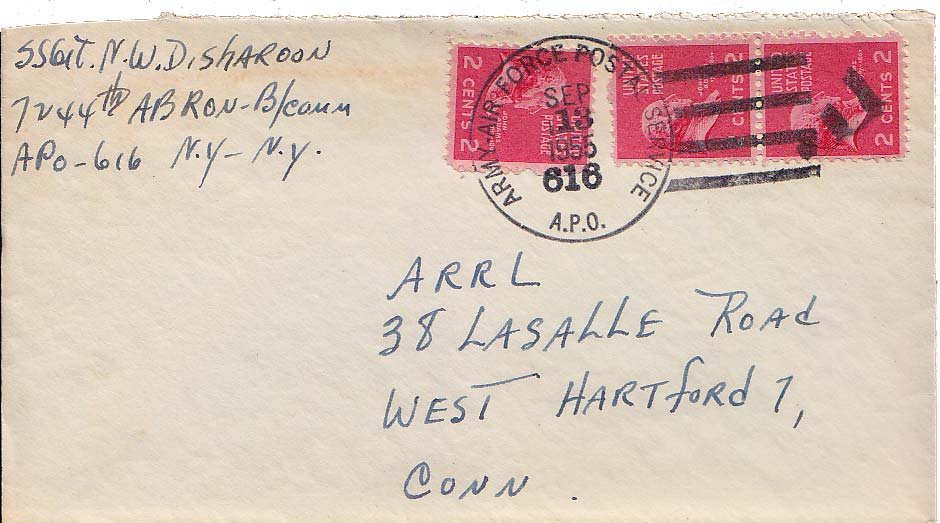 SSGT. N.W. DISHAROON
7244th ABRON-B/comm
APO-616 N.Y-N.Y.
2 CENTS 2
UNITED STATES POSTAGE
CENTS 2
UNITED STATES POSTAGE
2 CENTS 2
ARMY-AIR FORCE POSTAL SERVICE
SEP
13
1955
616
A.P.O.
ARRL
38 LASALLE ROAd
WEST HARTfORd 7,
CONN.